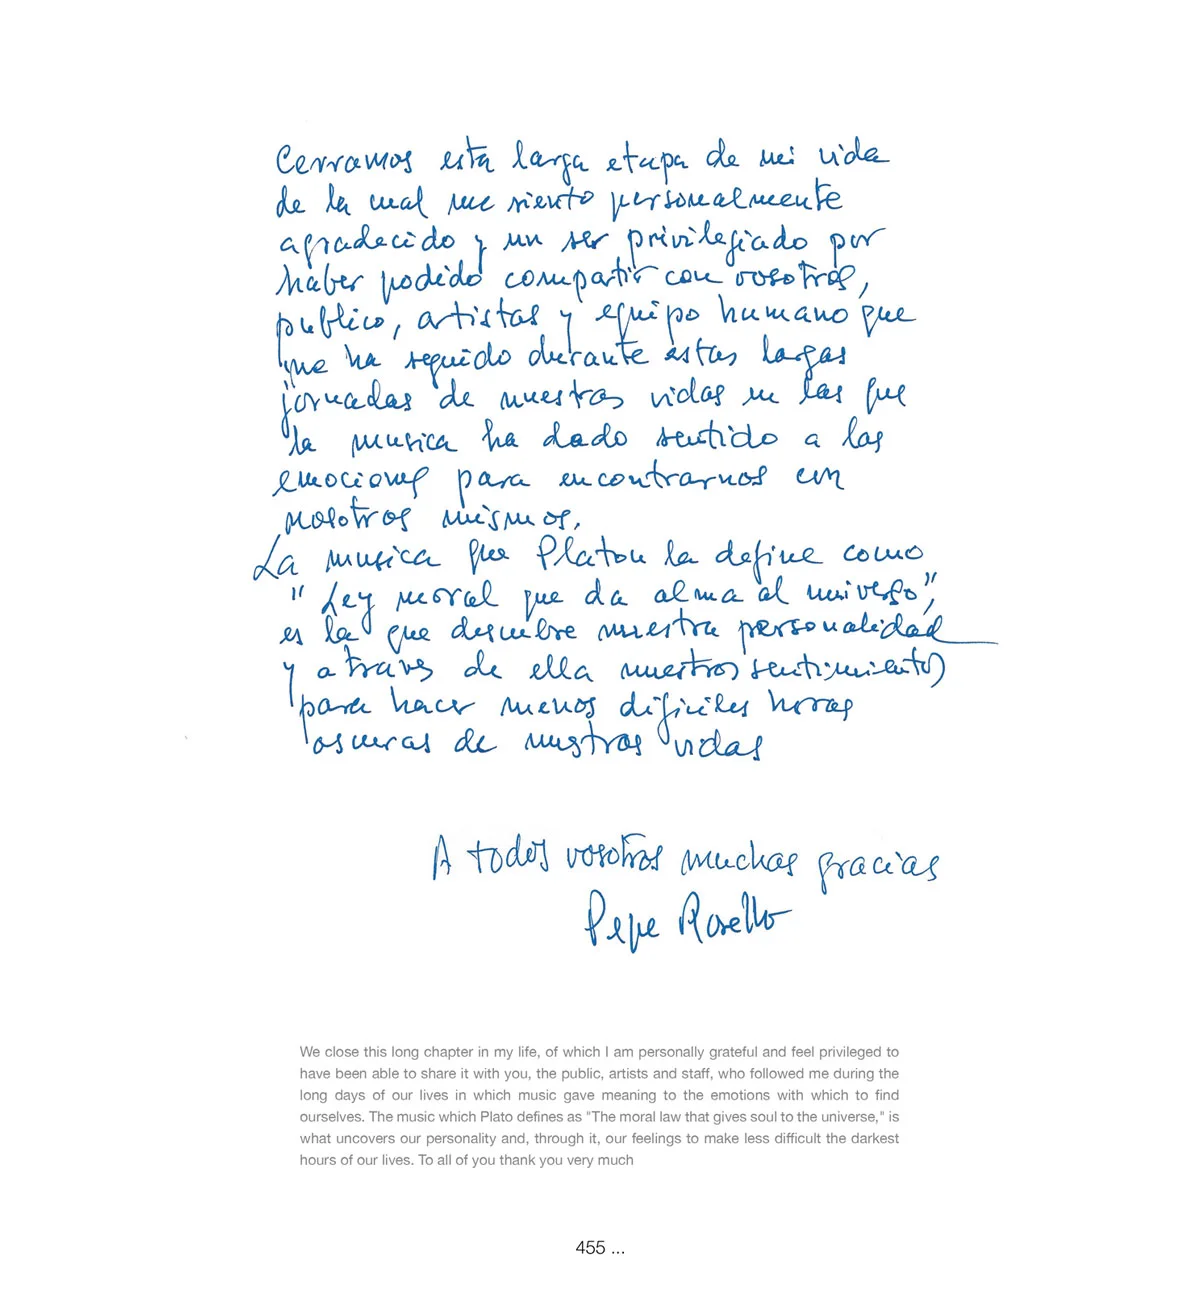 Cerramos esta larga etapa de mi vida
de la cual me siento personalmente
agradecido y un ser privilegiado por
haber podido compartir con vosotros,
publico, artistas y equipo humano que
me ha seguido durante estas largas
jornadas de nuestras vidas en las que
la musica ha dado sentido a las
emociones para encontrarnos con
nosotros mismos.
La musica que Platon la define como
" Ley moral que da alma al universo",
es la que descubre nuestra personalidad
y a traves de ella nuestros sentimientos
para hacer menos dificiles horas
oscuras de nuestras vidas
A todos vosotros muchas gracias
Pepe Rosello
We close this long chapter in my life, of which I am personally grateful and feel privileged to
have been able to share it with you, the public, artists and staff, who followed me during the
long days of our lives in which music gave meaning to the emotions with which to find
ourselves. The music which Plato defines as "The moral law that gives soul to the universe," is
what uncovers our personality and, through it, our feelings to make less difficult the darkest
hours of our lives. To all of you thank you very much
455 ...